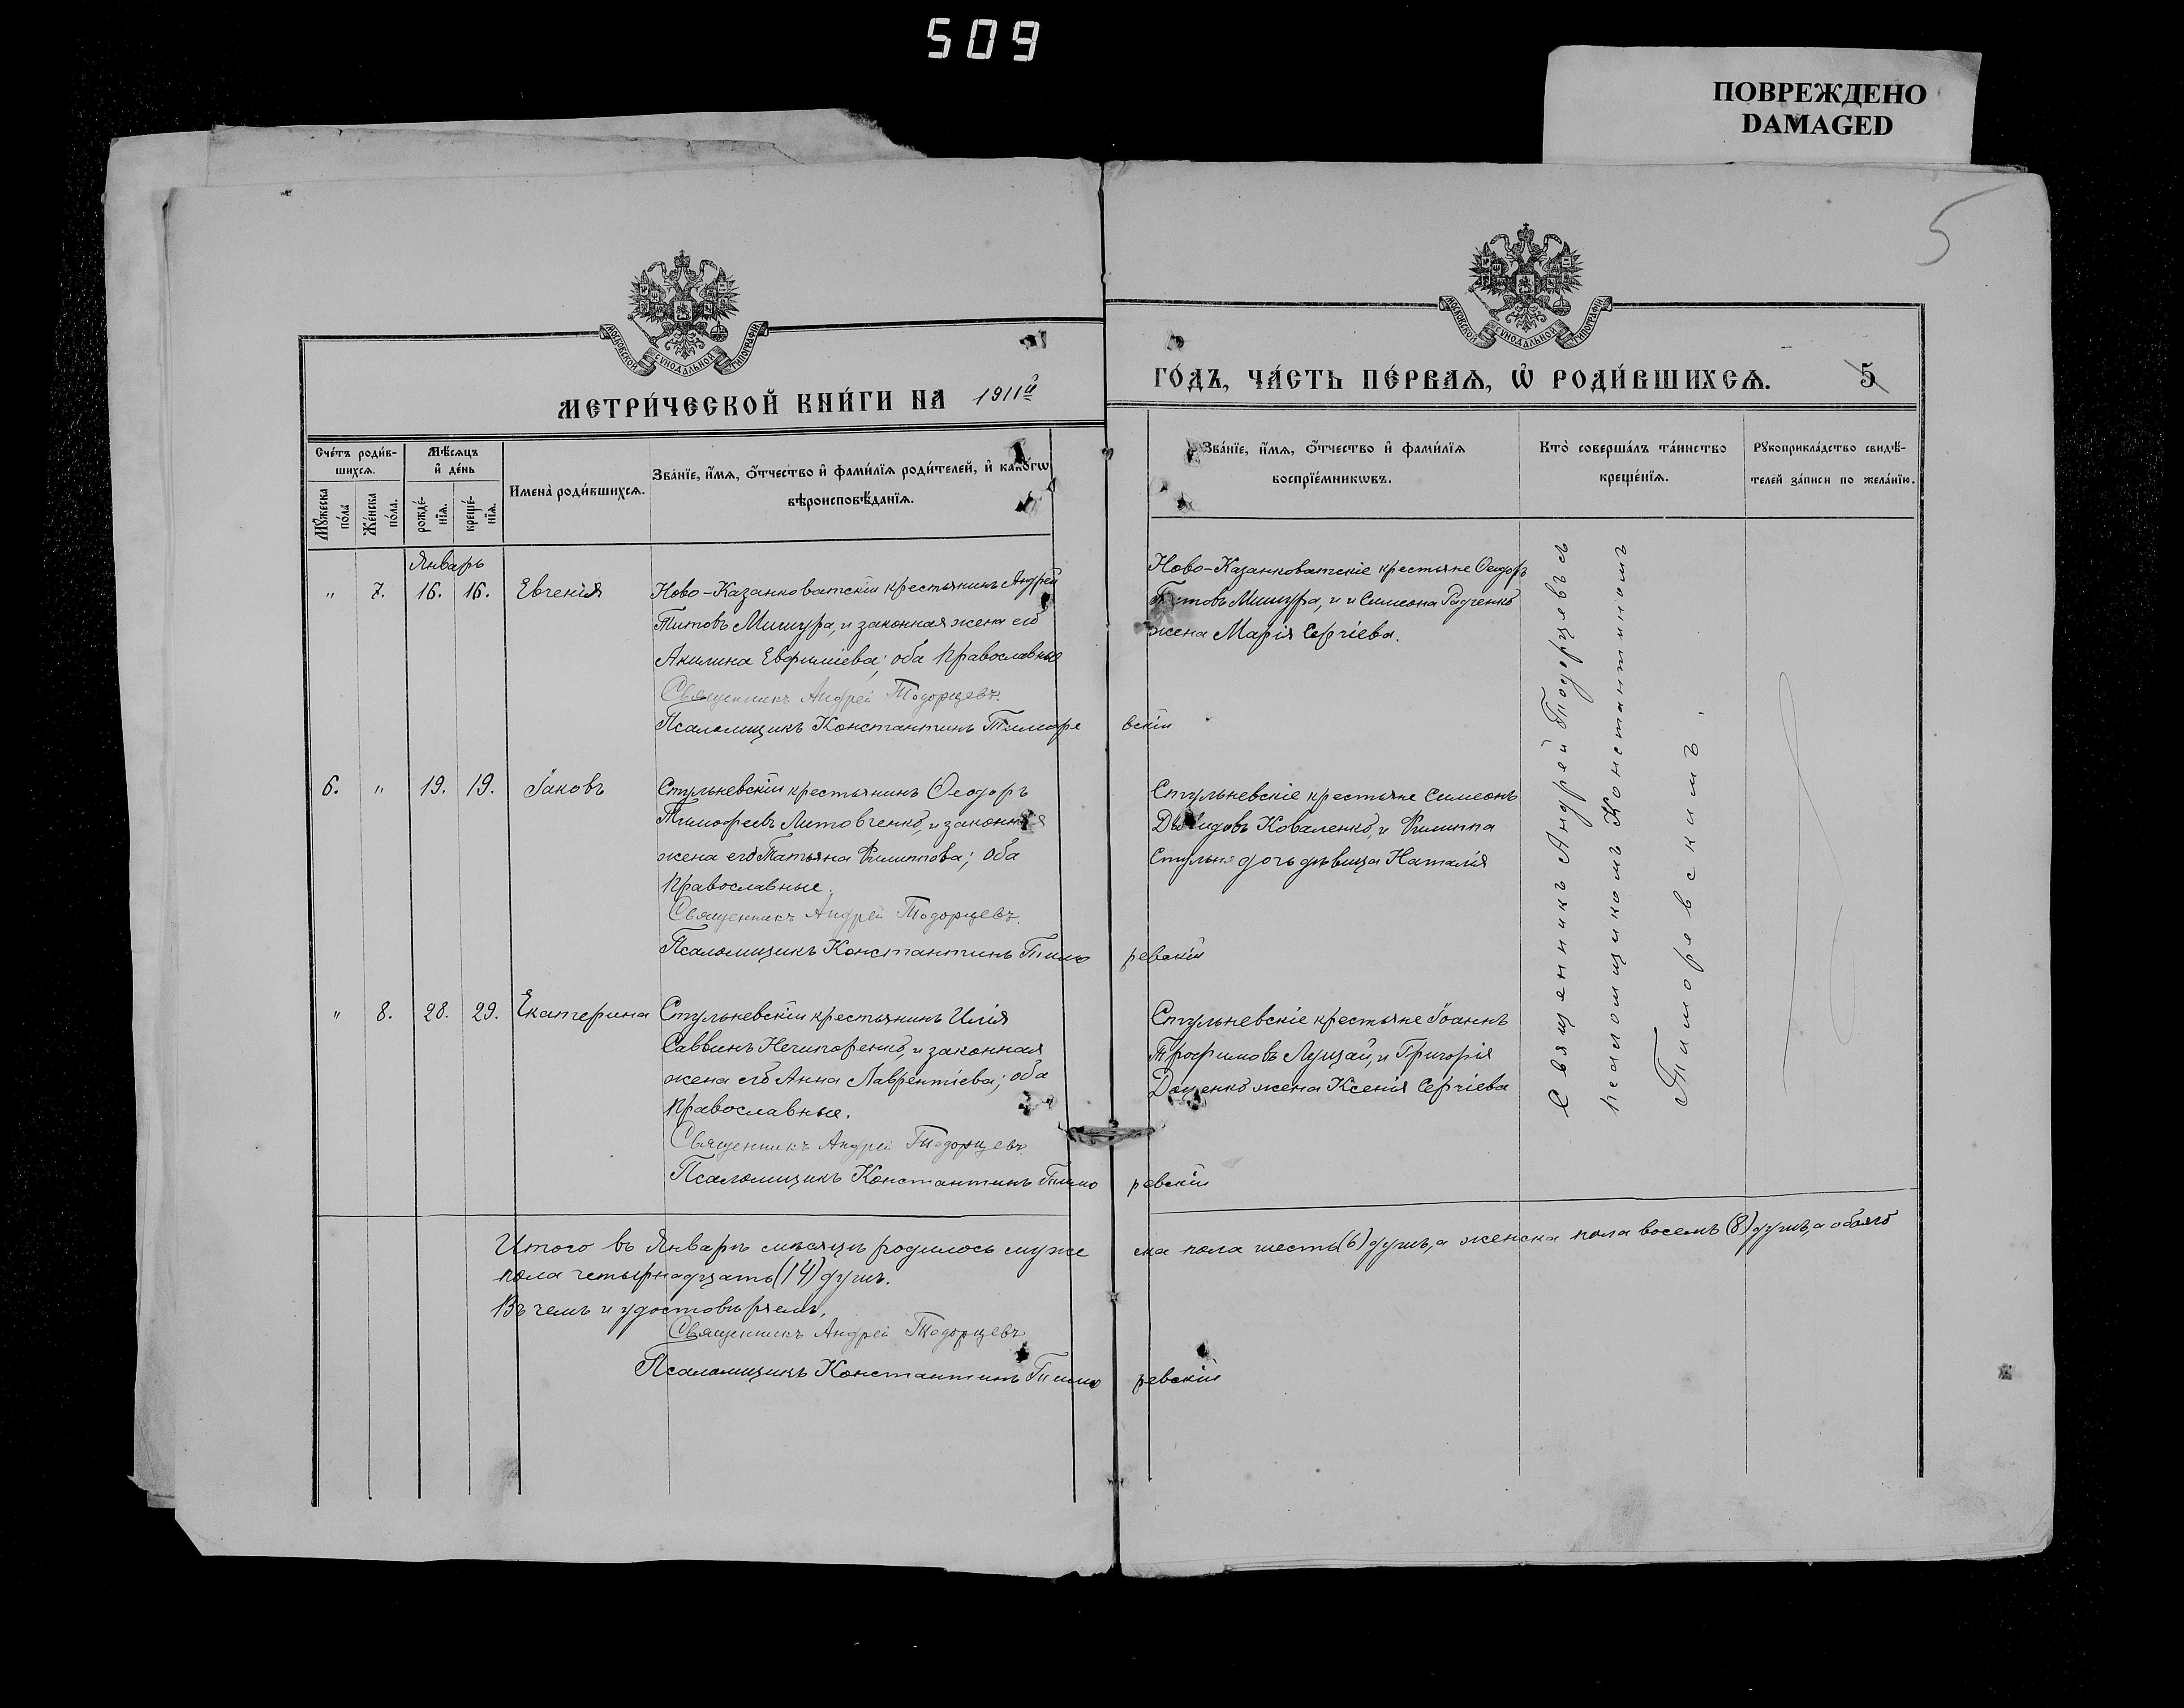 509
ПОВРЕЖДЕНО
DAMAGED
5
МОСКОВСКОЙ СѴНОДАЛЬНОЙ ТИПОГРАФІИ
МОСКОВСКОЙ СѴНОДАЛЬНОЙ ТИПОГРАФІИ
МЕТРИ́ЧЕСКОЙ КНИ́ГИ НА 1911й
ГО́ДЪ, ЧА́СТЬ ПЕ́РВАѦ, Ѡ҆ РОДИ́ВШИХСѦ. 5
Сче́тъ роди́в-
шихсѧ.
Мꙋ́жеска
по́ла
Же́нска
по́ла.
Мѣ́сѧцъ
и҆ де́нь
рожде́-
нїѧ.
креще́-
нїѧ.
Имена̀ роди́вшихсѧ.
Зва́нїе, и҆́мѧ, ѻ҆́тчество и҆ фами́лїѧ роди́телей, и҆ како́гѡ
вѣроисповѣ́данїѧ.
Зва́нїе, и҆́мѧ, ѻ҆́тчество и҆ фами́лїѧ
воспрїе́мникѡвъ.
Кто̀ соверша́лъ та́инство
креще́нїѧ.
Рꙋкоприкла́дство свидѣ́-
телей за́писи по жела́нїю.
Январь
" 7. 16. 16. Евгенія
Ново-Казанковатскій крестьянинъ Андрей
Титовъ Мишура, и законная жена его
Акилина Евфиміева; оба православные
Священникъ Андрей Тодорцевъ.
Псаломщикъ Константинъ Тиморевскій
Ново-Казанковатскіе крестьяне Ѳеодоръ
Титовъ Мишура, и Симеона Радченко
жена Марія Сергіева.
6. " 19. 19. Іаковъ
Стульневскій крестьянинъ Ѳеодоръ
Тимофеевъ Литовченко, и законная
жена его Татьяна Филиппова; оба
православные.
Священникъ Андрей Тодорцевъ.
Псаломщикъ Константинъ Тиморевскій
Стульневскіе крестьяне Симеонъ
Давидовъ Коваленко, и Филиппа
Стульня дочь дѣвица Наталія
" 8. 28. 29. Екатерина
Стульневскій крестьянинъ Илія
Саввинъ Нечипоренко, и законная
жена его Анна Лаврентіева; оба
православные.
Священникъ Андрей Тодорцевъ
Псаломщикъ Константинъ Тиморевскій
Стульневскіе крестьяне Іоаннъ
Трофимовъ Луцай, и Григорія
Доценко жена Ксенія Сергіева
Священникъ Андрей Тодорцевъ съ
псаломщикомъ Константиномъ
Тиморевскимъ.
Итого въ Январѣ мѣсяцѣ родилось мужеска пола шесть (6) душъ, а женска пола восемь (8) душъ, а обоего
пола четырнадцать (14) душъ.
Въ чемъ и удостовѣряемъ,
Священникъ Андрей Тодорцевъ
Псаломщикъ Константинъ Тиморевскій